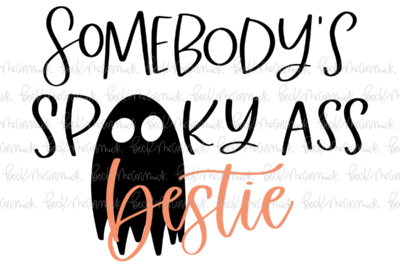 SOMEBODY'S
SPOOKY ASS
bestie